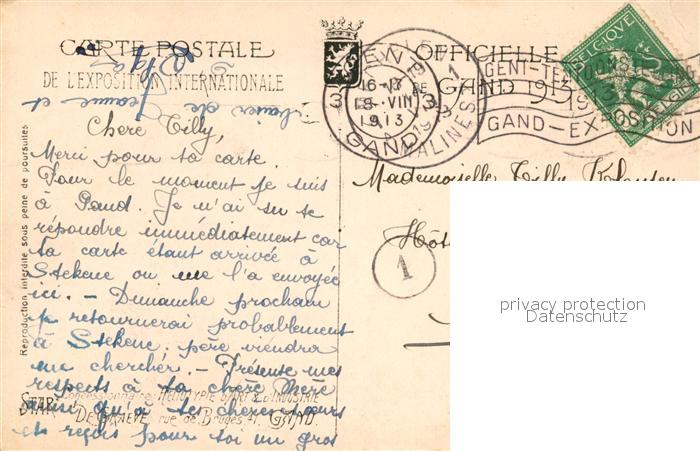 CARTE POSTALE OFFICIELLE
DE L'EXPOSITION INTERNATIONALE DE GAND 1913
BELGIQUE
BELGIE
GENT
1913
GAND-EXPOSITION
GENT
16-17
8-VIII
1913
GAND
3 3
MALINES
baiser de Jeanne et
Chere Tilly,
Merci pour ta carte.
Pour le moment je suis
à Gand. Je n'ai su te
répondre immédiatement car
ta carte étant arrivée à
Stekene on me l'a envoyée
ici. - Dimanche prochain
je retournerai probablement
à Stekene, père viendra
me chercher. - Présente mes
respects à ta chère Mère
ainsi qu'à tes chères sœurs
et reçois pour toi un gros
Mademoiselle Tilly
Hôt
1
Reproduction interdite sous peine de poursuites
Concessionnaire: HÉLIOTYPIE D'ART & D'INDUSTRIE
STAR DE GRAEVE, rue de Bruges, 41. GAND.
privacy protection
Datenschutz